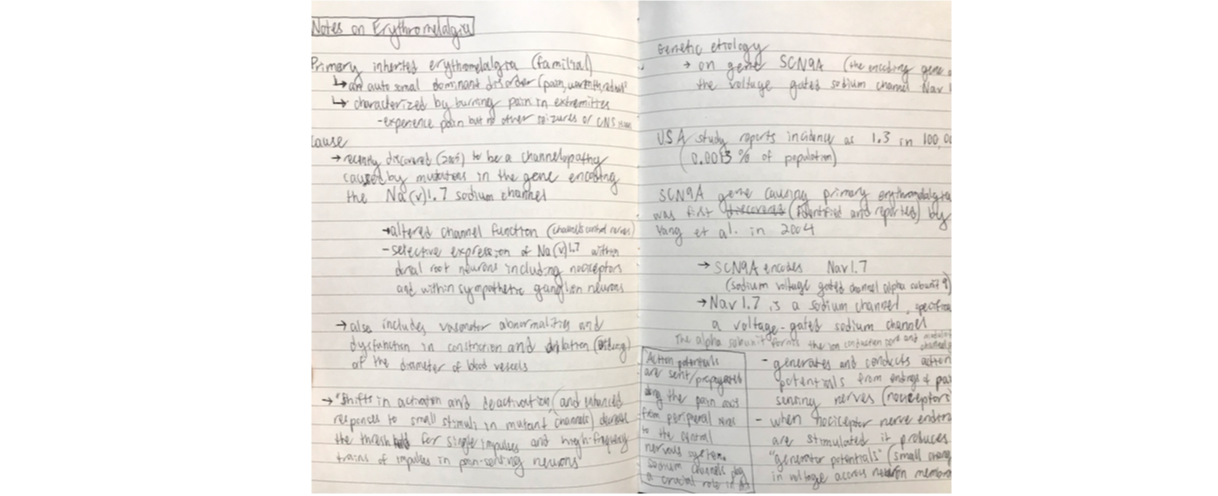 Notes on Erythromelalgia
Primary inherited erythromelalgia (familial)
↳ an autosomal dominant disorder (pain, warmth,
↳ characterized by burning pain in extremities
- experience pain but no other seizures or CNS
Cause
→ recently discovered to be a channelopathy
caused by mutations in the gene encoding
the Na(v)1.7 sodium channel
→ altered channel function (channels control nerves)
- selective expression of Na(v)1.7 within
dorsal root neurons including nociceptors
and within sympathetic ganglion neurons
→ also includes vasomotor abnormalities and
dysfunction in constriction and dilation
of the diameter of blood vessels
→ "shifts in activation and deactivation (and enhanced
responses to small stimuli in mutant channels) decrease
the threshold for single impulses and high-frequency
trains of impulses in pain-sensing neurons"
Genetic etiology
→ on gene SCN9A (the encoding gene
the voltage gated sodium channel Nav 1
USA study reports incidence as 1.3 in 100,0
(0.0013% of population)
SCN9A gene causing primary erythromelalgia
was first (identified and reported) by
Yang et al. in 2004
→ SCN9A encodes Nav1.7
(sodium voltage gated channel alpha subunit 9)
→ Nav 1.7 is a sodium channel,
a voltage-gated sodium channel
The alpha subunit forms the ion conduction pore and
Action potentials
are sent/propagated
along the pain axis
from peripheral
to the central
nervous system
Sodium channels play
a crucial role in
- generates and conducts action
potentials from endings of pain
sensing nerves (nociceptors
- when nociceptor nerve
are stimulated it produces
"generator potentials" (small
in voltage across neuron